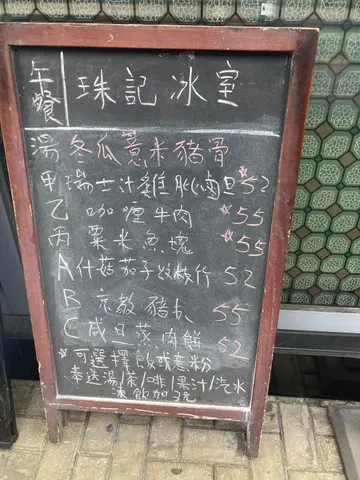 午餐 珠記冰室
湯 冬瓜薏米豬骨
甲 瑞士汁雞肶滷旦 ☆52
乙 咖喱牛肉 ☆55
丙 粟米魚塊 ☆55
A 什菇茄子炆枝竹 52
B 京都豬扒 55
C 咸旦蒸肉餅 52
☆可選擇飯或意粉
奉送湯/茶/啡/果汁/汽水
凍飲加3元